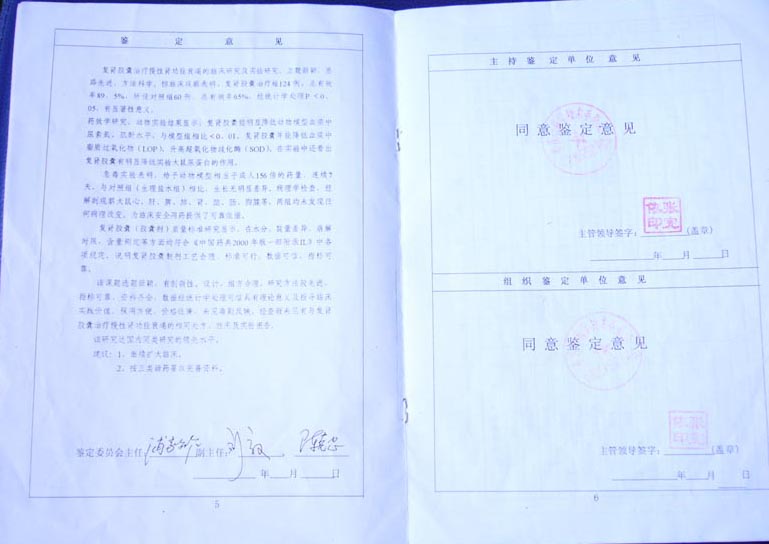 鉴定意见
复肾胶囊治疗慢性肾功能衰竭的临床研究及实验研究，立题新颖，思
路先进，方法科学，经临床试验表明，复肾胶囊治疗组124例，总有效
率89．5%，所设对照组60例，总有效率65%，经统计学处理P＜0．
05，有显著性意义。
药效学研究，动物实验结果显示，复肾胶囊能明显降低动物模型血浆中
尿素氮、肌酐水平，与模型组相比＜0．01，复肾胶囊并能降低血浆中
脂质过氧化物（LOP），升高超氧化物歧化酶（SOD），在实验中还看出
复肾胶囊有明显降低实验大鼠尿蛋白的作用。
急毒实验表明，给予动物模型相当于成人156倍的药量，连续7
天，与对照组（生理盐水组）相比，生长无明显差异，病理学检查，经
解剖观察大鼠心、肝、脾、肺、肾、脑、肠、胸腺等，两组均未发现任
何病理改变，为临床安全用药提供了可靠依据。
复肾胶囊（胶囊剂）质量标准研究当中，在水分、装量差异、崩解
时限、含量测定等方面均符合《中国药典2000年版一部附录IL》中各
项规定，说明复肾胶囊制剂工艺合理，标准可行，数据可信，指标可
靠。
该课题选题新颖，有创新性，设计、组方合理，研究方法较先进，
指标可靠，资料齐全，数据经统计学处理可信具有理论意义及指导临床
实践价值，服用方便，价格低廉，未见毒副反映，经查新未见有与复肾
胶囊治疗慢性肾功能衰竭的相同处方、临床及实验报告。
该研究达国内同类研究的领先水平。
建议：1、继续扩大临床。
2、按三类新药要求完善资料。
鉴定委员会主任： 副主任：
年 月 日
5
主持鉴定单位意见
同意鉴定意见
主管领导签字： （盖章）
年 月 日
组织鉴定单位意见
同意鉴定意见
主管领导签字： （盖章）
年 月 日
6